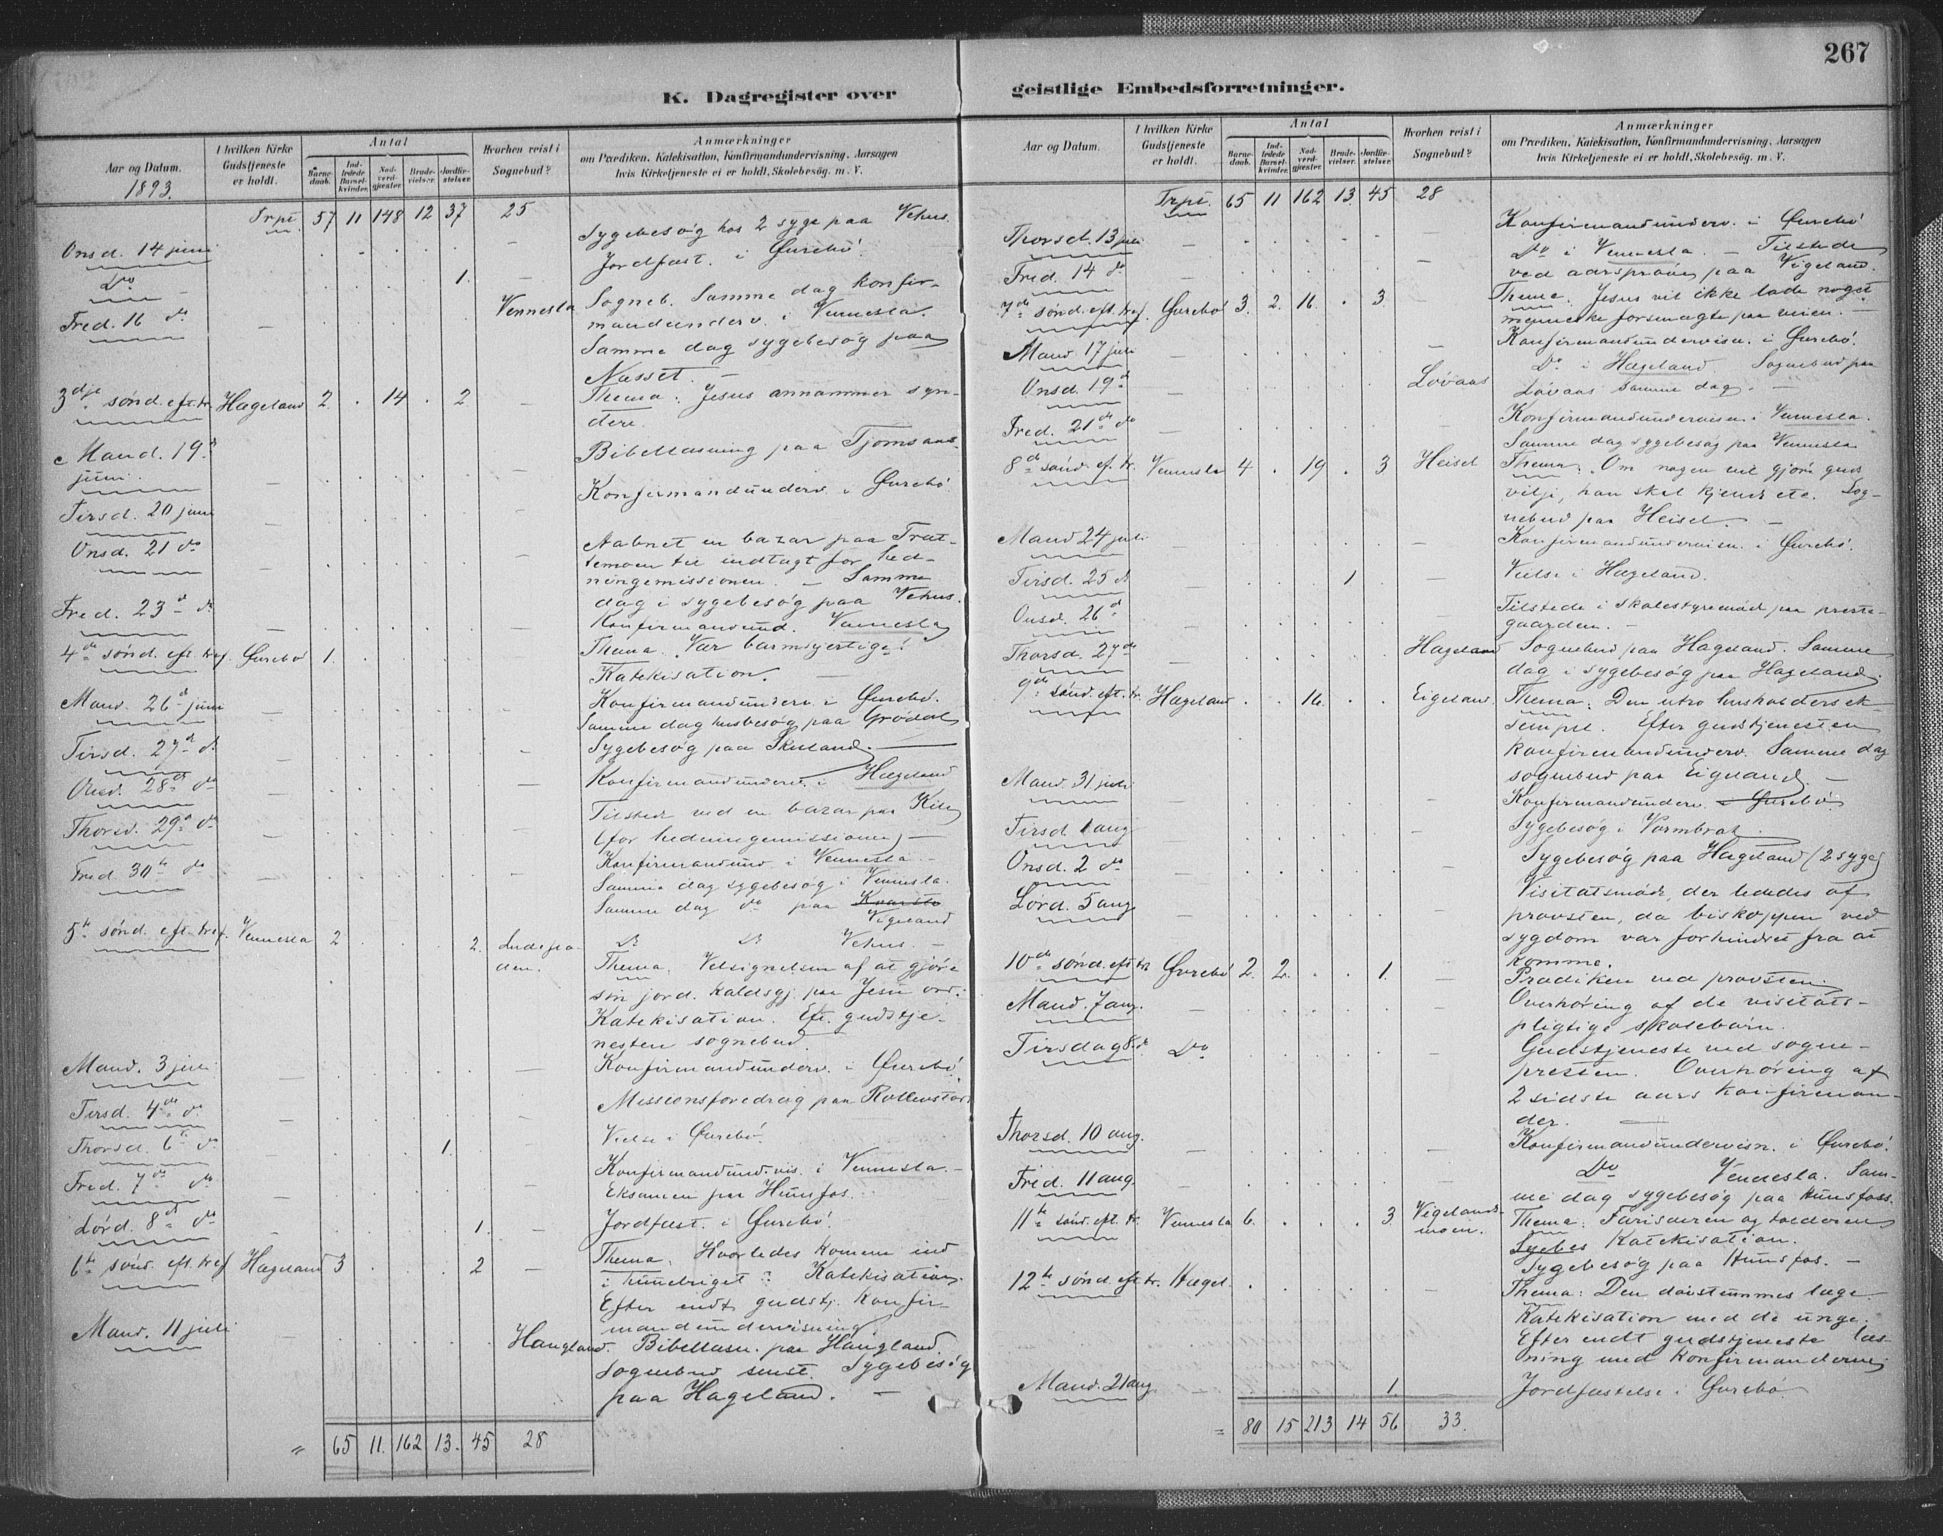 267
K. Dagregister over geistlige Embedsforretninger.
Aar og Datum.
1893.
I hvilken Kirke Gudstjeneste er holdt.
Antal
Barnedaab.
Indledede Barselkvinder.
Nadverdgjester.
Brudevielser.
Jordfæstelser.
Hvorhen reist i Sognebud?
Anmærkninger
om Prædiken, Katekisation, Konfirmandundervisning, Aarsagen
hvis Kirketjeneste ei er holdt, Skolebesøg. m. V.
Trpt 57 11 148 12 37 25
Onsd. 14 juni – – Sygebesøg hos 2 syge paa Vehus.
Do – 1. – Jordfast. i Øvrebø.
Fred. 16 do – Vennesla Sogneb. Samme dag konfir-
mandunderv. i Vennesla.
Samme dag sygebesøg paa
Næsset. –
3dje sønd. eft. tr. Hægeland 2. 14 2 – Thema: Jesus annammer syn-
dere.
Mand. 19. juni. – – Bibellæsning paa Tjomsaas
Tirsd. 20 juni – – Konfirmandunderv. i Øvrebø
Onsd. 21 do – – Aabnet en bazar paa
til indtægt for hed-
ningemissionen. – Samme
dag i sygebesøg paa Vehus.
Fred. 23 do – – Konfirmandund. Vennesla
4de sønd. eft. tref. Øvrebø 1. – Thema. Vær barmhjertige!
Katekisation. –
Mand. 26 juni – – Konfirmandunderv. i Øvrebø.
Samme dag husbesøg paa Grødal
Tirsd. 27 d – – Sygebesøg paa Skuland. –
Onsd. 28 do – – Konfirmandunderv. i Hægeland
Thorsd. 29 do – – Tilstede ved en bazar paa Kile
(for hedningemissionen) –
Fred. 30te do – – Konfirmandund. i Vennesla. –
Samme dag sygebesøg i Vennesla.
Samme dag do paa Kvarste
Vigeland
do do Vehus. –
5te sønd. eft. tref. Vennesla 2 2. Thema. Velsignelsen af at gjøre
sin jord. kaldsgj. paa Jesu ord.
Katekisation. Eft. gudstje-
nesten sognebud.
Mand. 3 juli – – Konfirmandunderv. i Øvrebø.
Tirsd. 4de do – – Missionsforedrag paa
Thorsd. 6 do – 1. – Vielse i Øvrebø.
Fred. 7de do – – Konfirmandundvis. i Vennesla. –
Eksamen paa Hunsfos.
Lørd. 8de do – 1. – Jordfast. i Øvrebø.
6te sønd. eft. tref. Hægeland 3 2 – Thema. Hvorledes komme ind
i himmelriget? Katekisation.
Efter endt gudstj. konfir-
mandundervisning.
Mand. 11 juli – Haugland. Bibellæsn. paa Haugland.
Sognebud smst. Sygebesøg
paa Hægeland. –
" 65 11. 162 13. 45 28
Aar og Datum.
I hvilken Kirke Gudstjeneste er holdt.
Antal
Barnedaab.
Indledede Barselkvinder.
Nadverdgjester.
Brudevielser.
Jordfæstelser.
Hvorhen reist i Sognebud?
Anmærkninger
om Prædiken, Katekisation, Konfirmandundervisning, Aarsagen
hvis Kirketjeneste ei er holdt, Skolebesøg. m. V.
Trpt. 65 11 162 13. 45 28
Thorsd. 13 juli – – Konfirmandunderv. i Øvrebø
Fred. 14 do – – Do i Vennesla. – Tilstede
ved aarsprøven paa Vigeland.
7de sønd. eft. tref. Øvrebø 3. 2. 16. 3 – Thema: Jesus vil ikke lade noget
menneske forsmægte paa veien. –
Mand. 17 juli – – Konfirmandundervisn. i Øvrebø.
Onsd. 19 d – Løvaas Do i Hægeland. Sognebud paa
Løvaas samme dag. –
Fred. 21de do – – Konfirmandundervisn. i Vennesla.
Samme dag sygebesøg paa Vennesla
8de sønd. ef. tr. Vennesla 4 19 3 Heisel Thema: Om nogen vil gjøre guds
vilje, han skal kjende etc. Sog-
nebud paa Heisel. –
Mand 24 juli – – Konfirmandundervisn. i Øvrebø.
Tirsd. 25 d – 1 – Vielse i Hægeland.
Onsd. 26 d – – Tilstede i skolestyremød paa preste-
gaarden. –
Thorsd. 27de – Hægeland Sognebud paa Hægeland. Samme
dag i sygebesøg paa Hægeland.
9de sønd. eft. tr. Hægeland 16. Eigeland Thema: Den utro husholders ek-
sempel. Efter gudstjenesten
konfirmandunderv. Samme dag
sognebud paa Eigeland. –
Mand. 31 juli – – Konfirmandunderv. i Øvrebø
Tirsd 1 aug – – Sygebesøg i
Onsd. 2 do – – Sygebesøg paa Hægeland (2 syge)
Lørd. 5 aug – – Visitatsmøde, der lededes af
provsten, da biskoppen ved
sygdom var forhindret fra at
komme.
10de sønd. eft tr Øvrebø 2. 2. 1. – Prædiken ved provsten.
Mand. 7 aug. – – Overhøring af de visitats-
pligtige skolebørn.
Tirsdag 8 do Do – Gudstjeneste ved sogne-
presten. Overhøring af
2 sidste aars konfirman-
der. –
Thorsd. 10 aug. – – Konfirmandundervisn. i Øvrebø.
Fred. 11 aug. – – Do Vennesla. Sam-
me dag sygebesøg paa Hunsfoss.
11te sønd. eft. tr. Vennesla 6. 3. Vigelands-
moen. Thema: Farisæeren og tolderen
Sygebes Katekisation.
Sygebesøg paa Hunsfos. –
12te sønd. eft tr. Hægel. Thema: Den døvstummes læge.
Katekisation med de unge.
Efter endt gudstjeneste læs-
ning med konfirmanderne
Mand. 21 aug. – 1. – Jordfæstelse i Øvrebø
" 80 15 213 14 56 33.